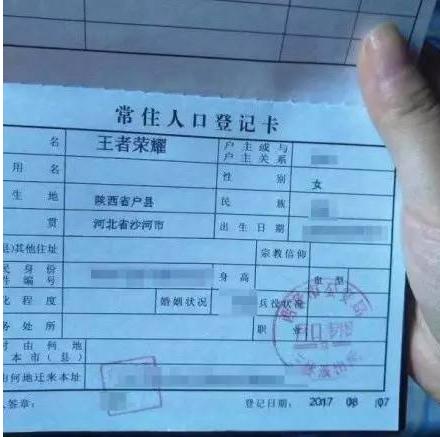 常住人口登记卡
名 王者荣耀 户主或与
户主关系
用名 性别 女
生地 陕西省户县 民族
贯 河北省沙河市 出生日期
县)其他住址 宗教信仰
民身份
件编号 身高 血型
化程度 婚姻状况 兵役状况
务处所 职
时由何地
本市(县)
由何地迁来本址
人签章: 登记日期: 2017 08 07